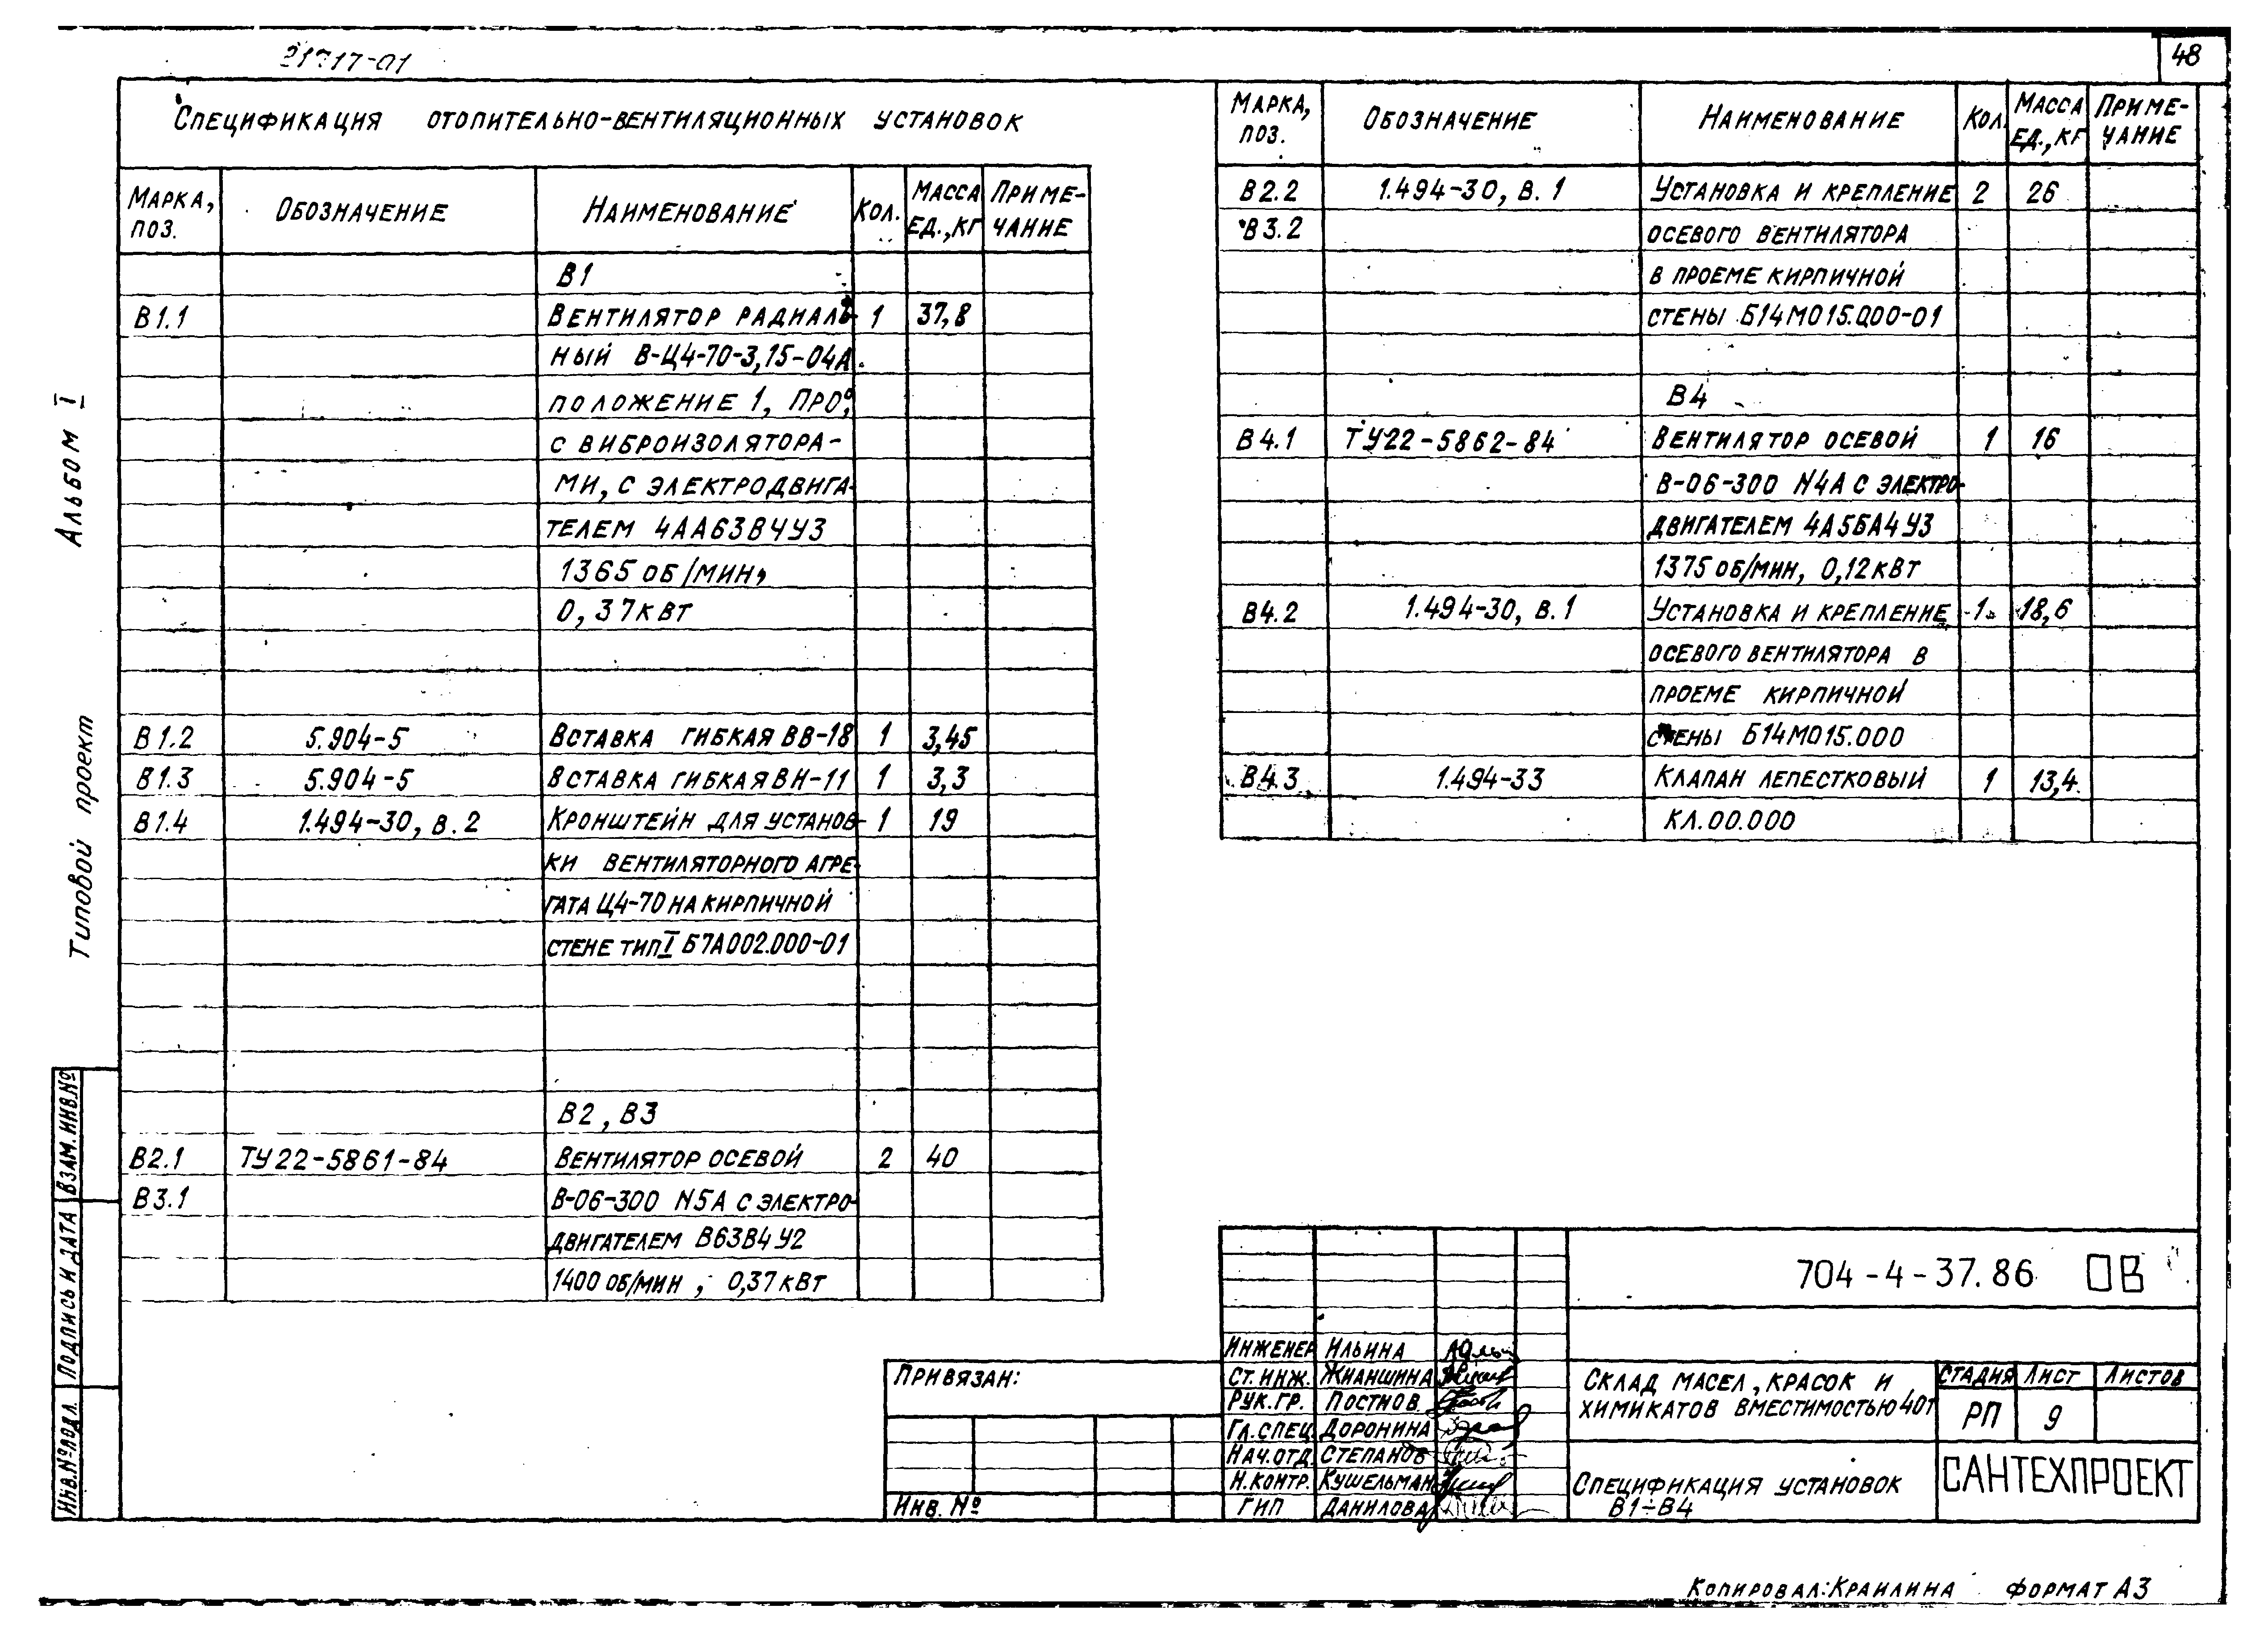 21717-01
48
Спецификация отопительно-вентиляционных установок
Марка, поз. Обозначение Наименование Кол. Масса ед., кг Примечание
В1
В1.1 Вентилятор радиаль- 1 37,8
ный В-Ц4-70-3,15-04А
положение 1, ПРО°,
с виброизолятора-
ми, с электродвига-
телем 4АА63В4У3
1365 об/мин,
0,37 кВт
В1.2 5.904-5 Вставка гибкая ВВ-18 1 3,45
В1.3 5.904-5 Вставка гибкая ВН-11 1 3,3
В1.4 1.494-30, в.2 Кронштейн для установ- 1 19
ки вентиляторного агре-
гата Ц4-70 на кирпичной
стене тип I Б7А002.000-01
В2, В3
В2.1 ТУ22-5861-84 Вентилятор осевой 2 40
В3.1 В-06-300 N5А с электро-
двигателем В63В4У2
1400 об/мин, 0,37 кВт
Марка, поз. Обозначение Наименование Кол. Масса ед., кг Примечание
В2.2 1.494-30, в.1 Установка и крепление 2 26
В3.2 осевого вентилятора
в проеме кирпичной
стены Б14М015.000-01
В4
В4.1 ТУ22-5862-84 Вентилятор осевой 1 16
В-06-300 N4А с электро-
двигателем 4А5БА4У3
1375 об/мин, 0,12 кВт
В4.2 1.494-30, в.1 Установка и крепление 1 18,6
осевого вентилятора в
проеме кирпичной
стены Б14М015.000
В4.3 1.494-33 Клапан лепестковый 1 13,4
КЛ.00.000
Альбом I
Типовой проект
Взам. инв. №
Подпись и дата
Инв. № подл.
Привязан:
Инв. №
704-4-37.86 ОВ
Инженер Ильина
Ст. инж. Жианшина
Рук. гр. Постнов
Гл. спец. Доронина
Нач. отд. Степанов
Н. контр. Кушельман
ГИП Данилова
Склад масел, красок и
химикатов вместимостью 40т
Стадия Лист Листов
РП 9
Спецификация установок
В1÷В4
САНТЕХПРОЕКТ
Копировал: Краилина Формат А3